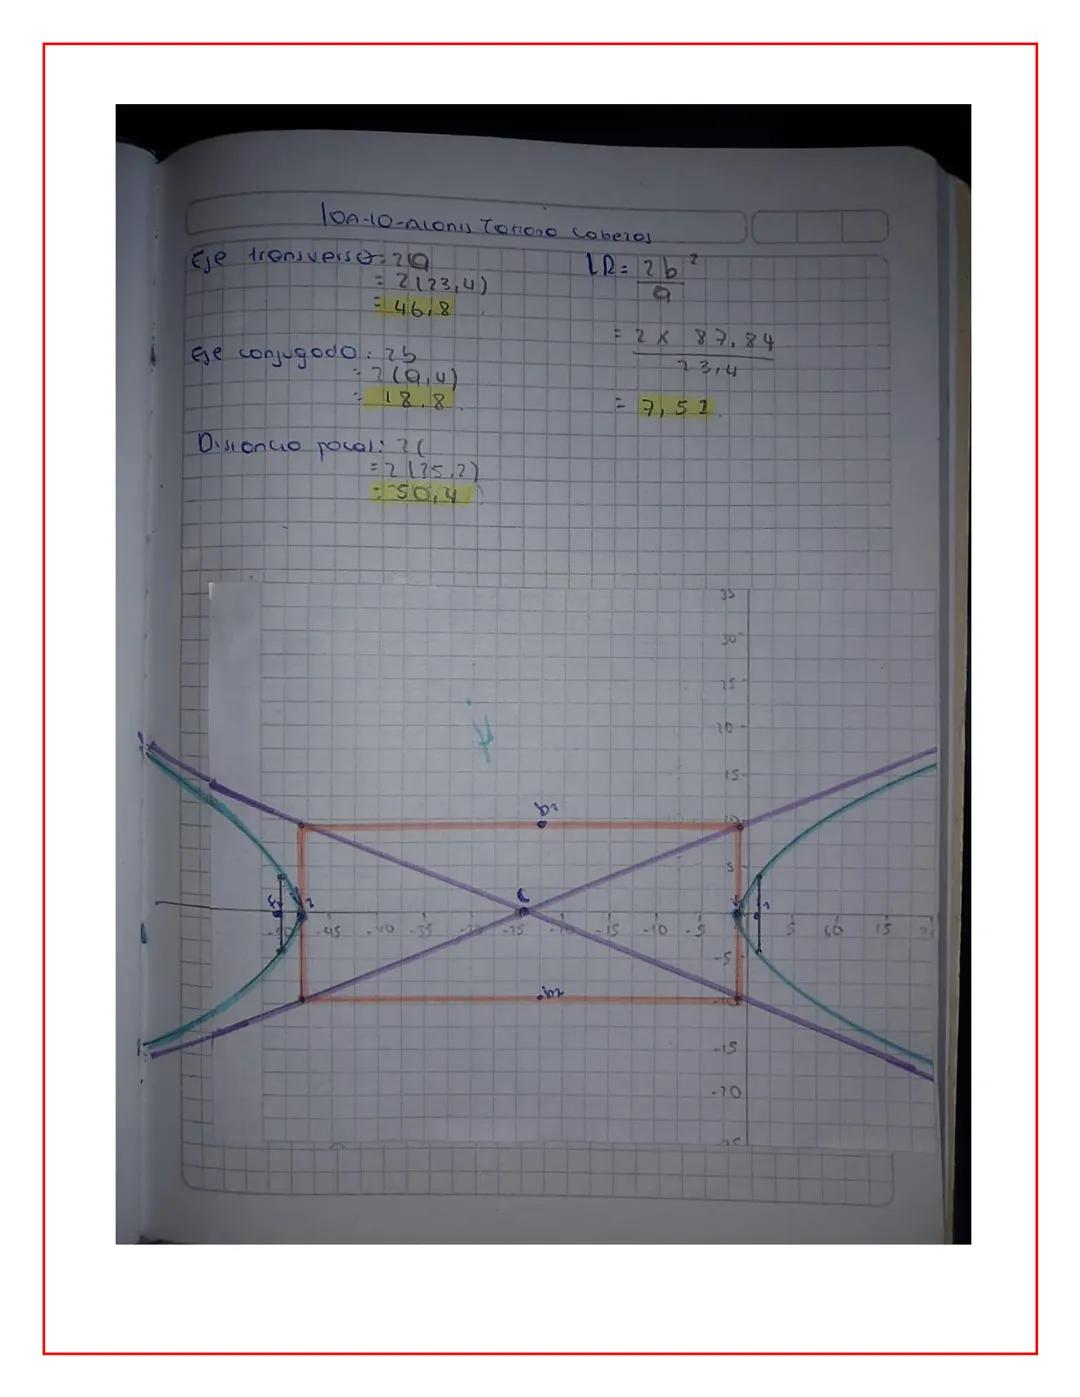 10A-10-Alanis Totoro Caberas
Eje transverso: 2a
= 2(23,4)
= 46,8
Eje conjugado: 2b
= 2(9,4)
= 18.8
Distancia focal: 2c
= 2(25,2)
= 50,4
LR = 2b²
a
= 2 x 87.84
23,4
= 7,51
35
30
25
20
15
10
5
-50 -45 -40 -35 -30 -25 -20 -15 -10 -5 5 10 15 20
-5
-10
-15
-20
b1
C
b2